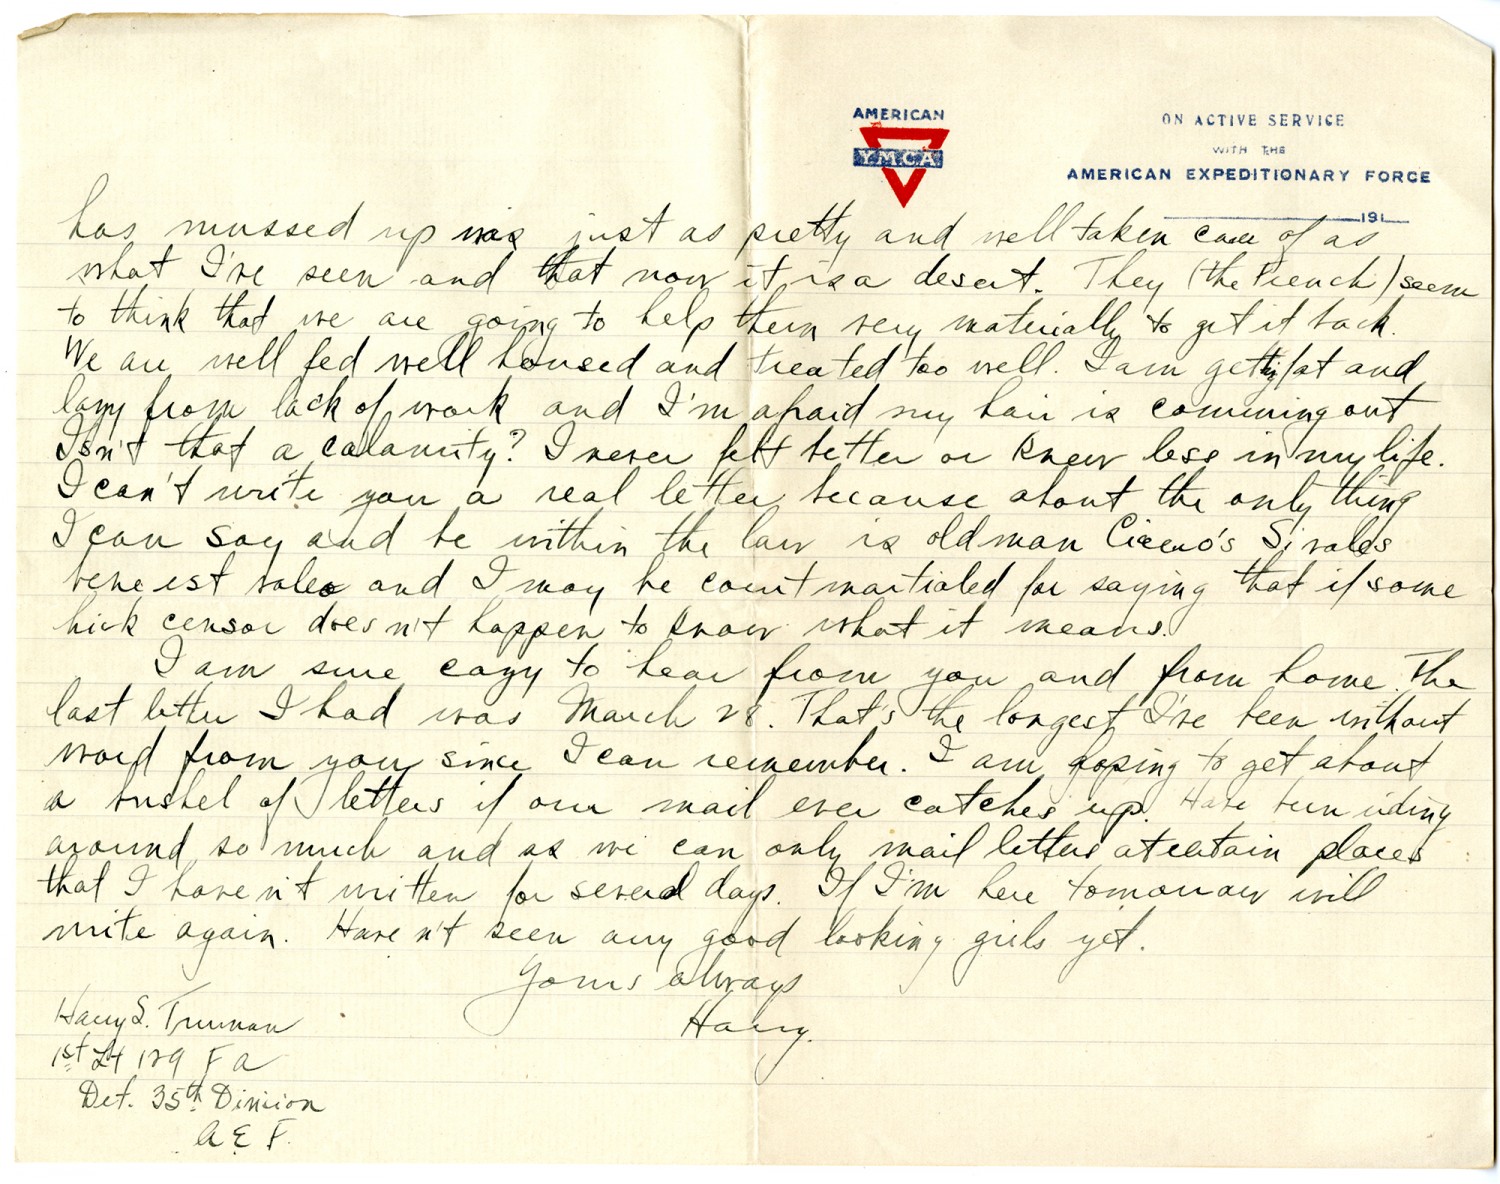 AMERICAN
Y.M.C.A.
ON ACTIVE SERVICE
WITH THE
AMERICAN EXPEDITIONARY FORCE
191
has mussed up was just as pretty and well taken care of as
what I've seen and that now it is a desert. They (the French) seem
to think that we are going to help them very materially to get it back.
We are well fed well housed and treated too well. I am getting fat and
lazy from lack of work and I'm afraid my hair is comming out
Isn't that a calamity? I never felt better or knew less in my life.
I can't write you a real letter because about the only thing
I can say and be within the law is old man Cicero's Si vales
bene est valeo and I may be courtmartialed for saying that if some
hick censor doesn't happen to know what it means.
I am sure cazy to hear from you and from home. The
last letter I had was March 28. That's the longest I've been without
word from you since I can remember. I am hoping to get about
a bushel of letters if our mail ever catches up. Have been riding
around so much and as we can only mail letters at certain places
that I haven't written for several days. If I'm here tomorrow will
write again. Haven't seen any good looking girls yet.
Yours always
Harry.
Harry S. Truman
1st Lt 129 F A
Det. 35th Division
A E F.